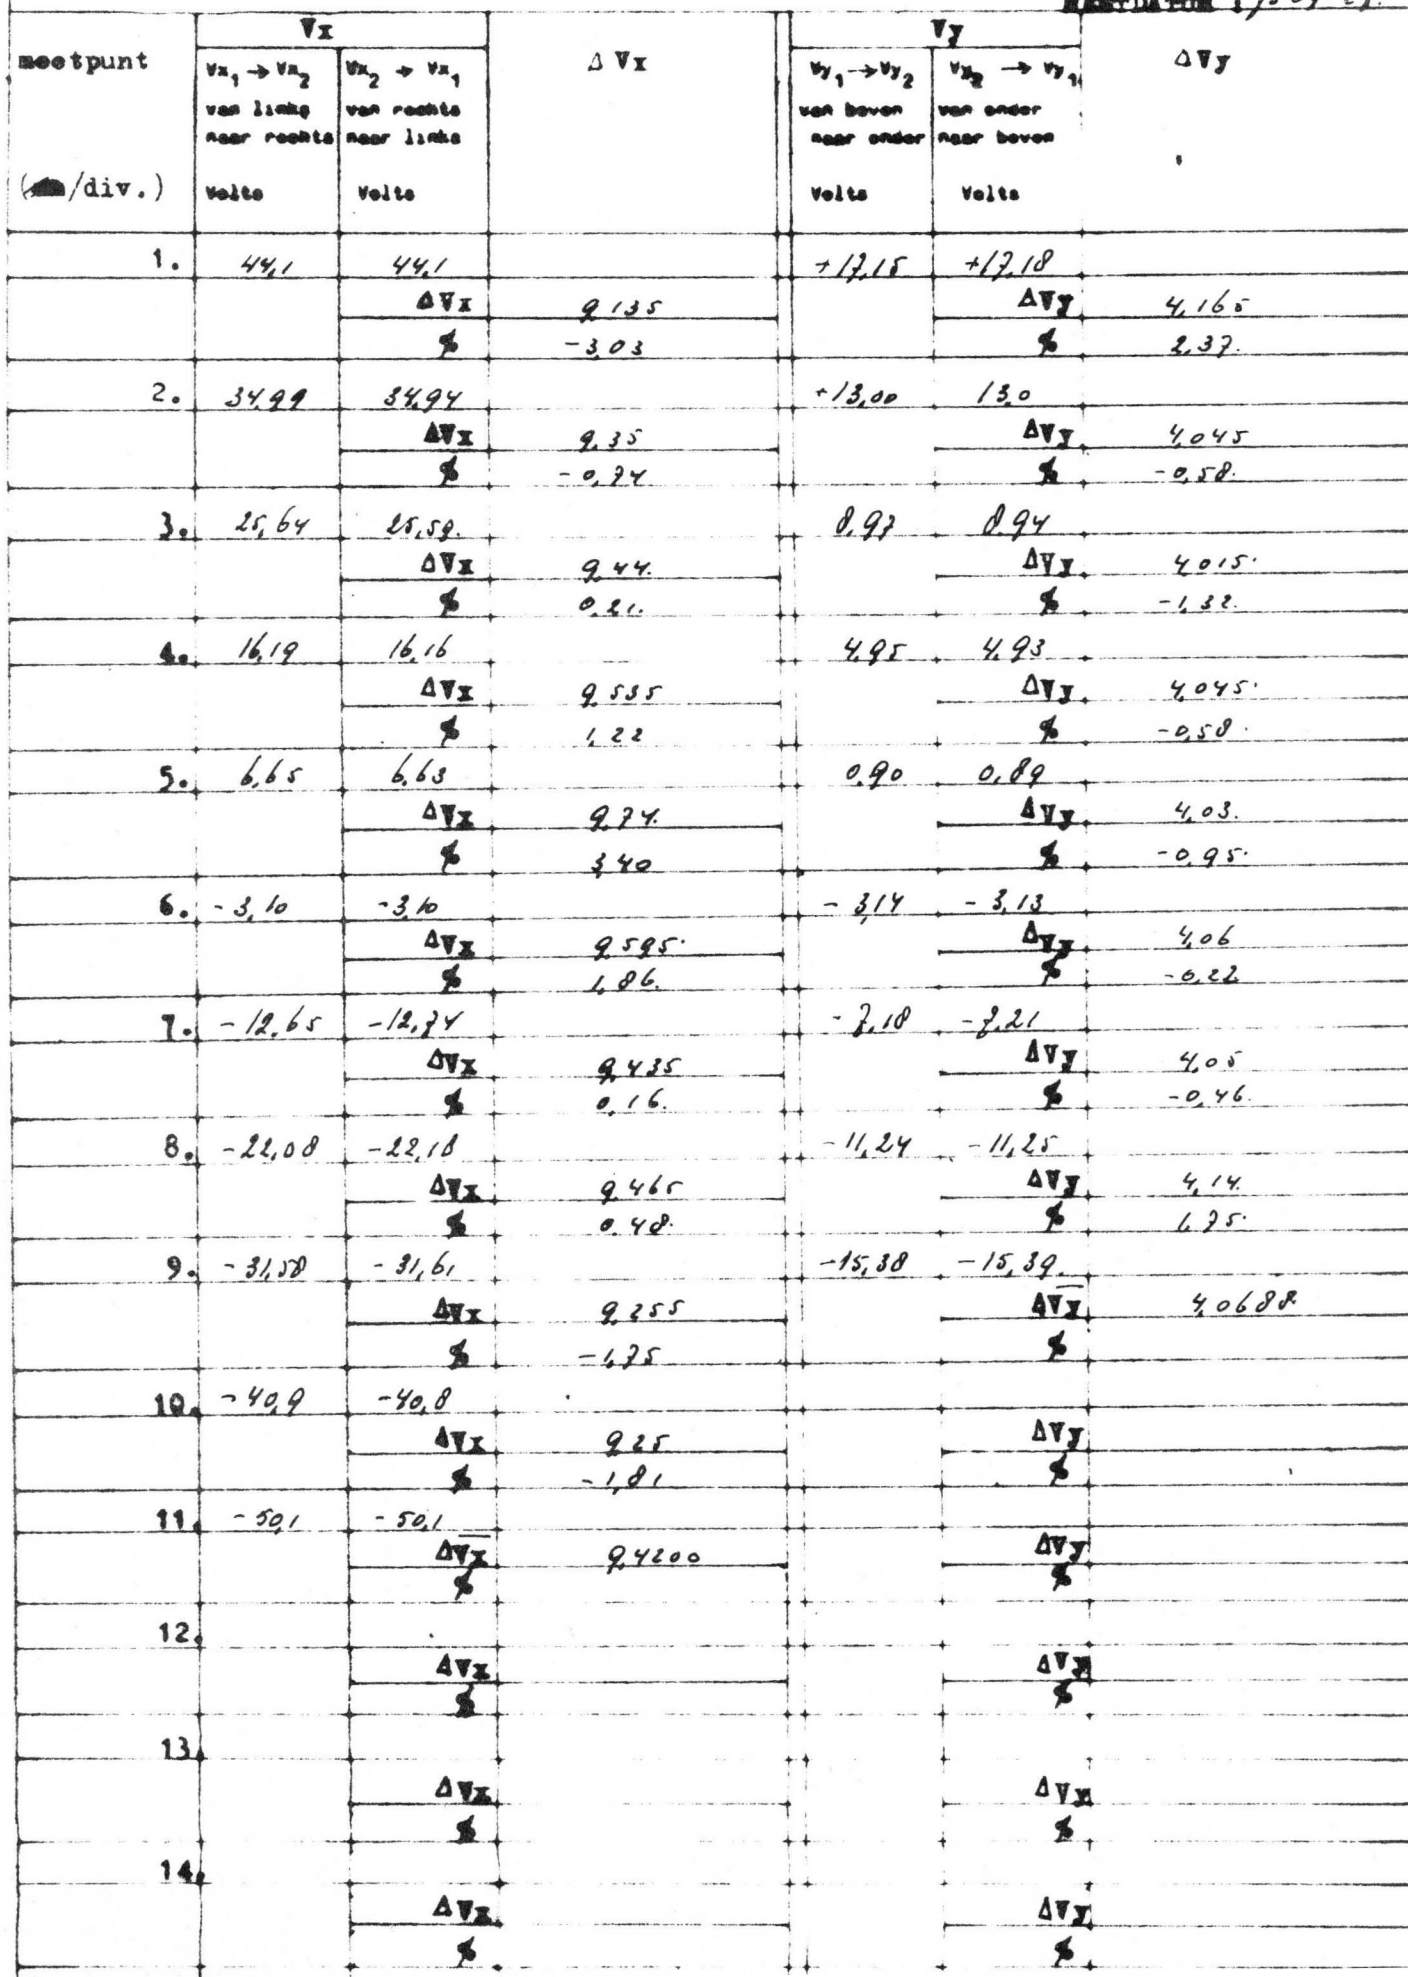 Vx Vy
meetpunt Vx1 → Vx2 Vx2 → Vx1 Δ Vx Vy1 → Vy2 Vy2 → Vy1 ΔVy
van links van rechts van boven van onder
naar rechts naar links naar onder naar boven
(/div.) Volts Volts Volts Volts
1. 44,1 44,1 +17,15 +17,18
ΔVx 9,135 ΔVy 4,165
% -3,03 % 2,37.
2. 34,99 34,94 +13,00 13,0
ΔVx 9,35 ΔVy 4,045
% -0,74 % -0,58.
3. 25,64 25,59. 8,97 8,94
ΔVx 9,44. ΔVy 4,015.
% 0,21. % -1,32.
4. 16,19 16,16 4,95 4,93
ΔVx 9,535 ΔVy 4,045.
% 1,22 % -0,58.
5. 6,65 6,63 0,90 0,89
ΔVx 9,74. ΔVy 4,03.
% 3,40 % -0,95.
6. -3,10 -3,10 -3,14 -3,13
ΔVx 9,595. ΔVy 4,06
% 1,86. % -0,22
7. -12,65 -12,74 -7,18 -7,21
ΔVx 9,435 ΔVy 4,05
% 0,16. % -0,46.
8. -22,08 -22,18 -11,24 -11,25
ΔVx 9,465 ΔVy 4,14.
% 0,48. % 1,75.
9. -31,58 -31,61 -15,38 -15,39.
ΔVx 9,255 ΔVy 4,0688
% -1,75 %
10. -40,9 -40,8
ΔVx 9,25 ΔVy
% -1,81 %
11. -50,1 -50,1
ΔVx 9,4200 ΔVy
% %
12.
ΔVx ΔVy
% %
13.
ΔVx ΔVy
% %
14.
ΔVx ΔVy
% %